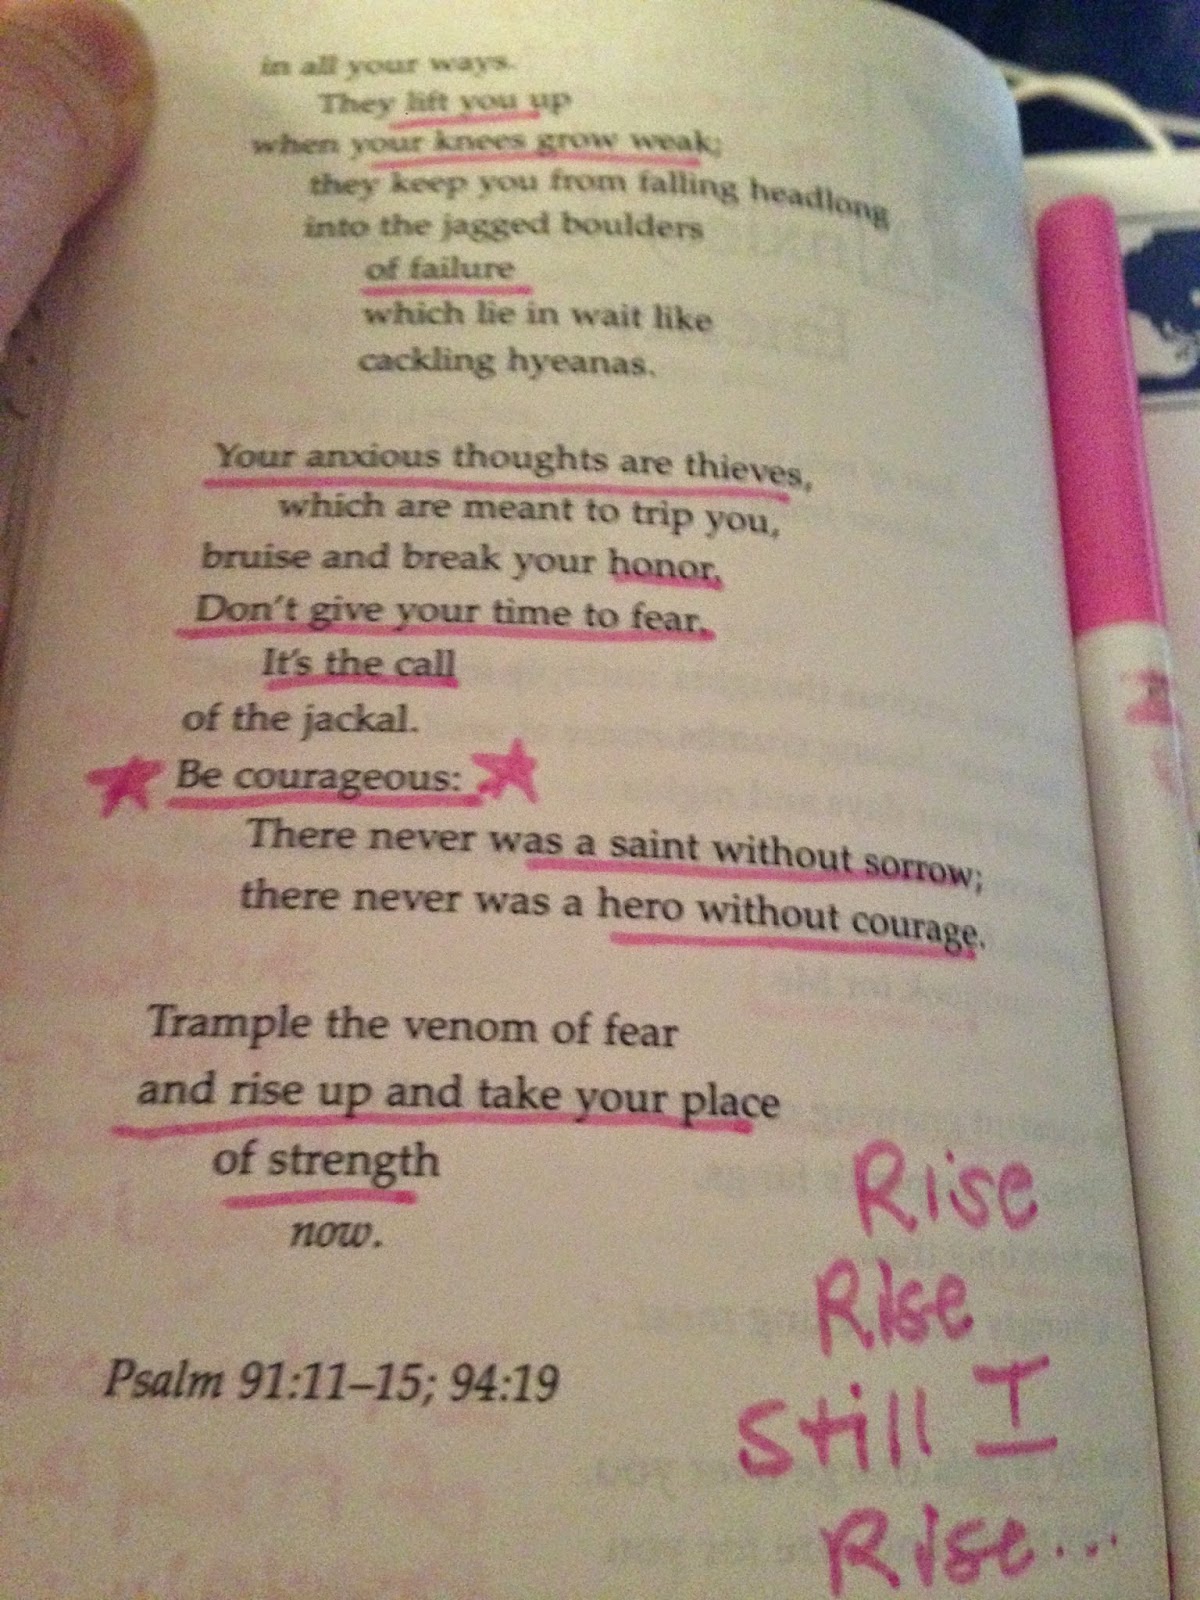 in all your ways.
They lift you up
when your knees grow weak;
they keep you from falling headlong
into the jagged boulders
of failure
which lie in wait like
cackling hyeanas.
Your anxious thoughts are thieves,
which are meant to trip you,
bruise and break your honor.
Don't give your time to fear.
It's the call
of the jackal.
Be courageous:
There never was a saint without sorrow;
there never was a hero without courage.
Trample the venom of fear
and rise up and take your place
of strength
now.
Psalm 91:11–15; 94:19
Rise
Rise
Still I
Rise...